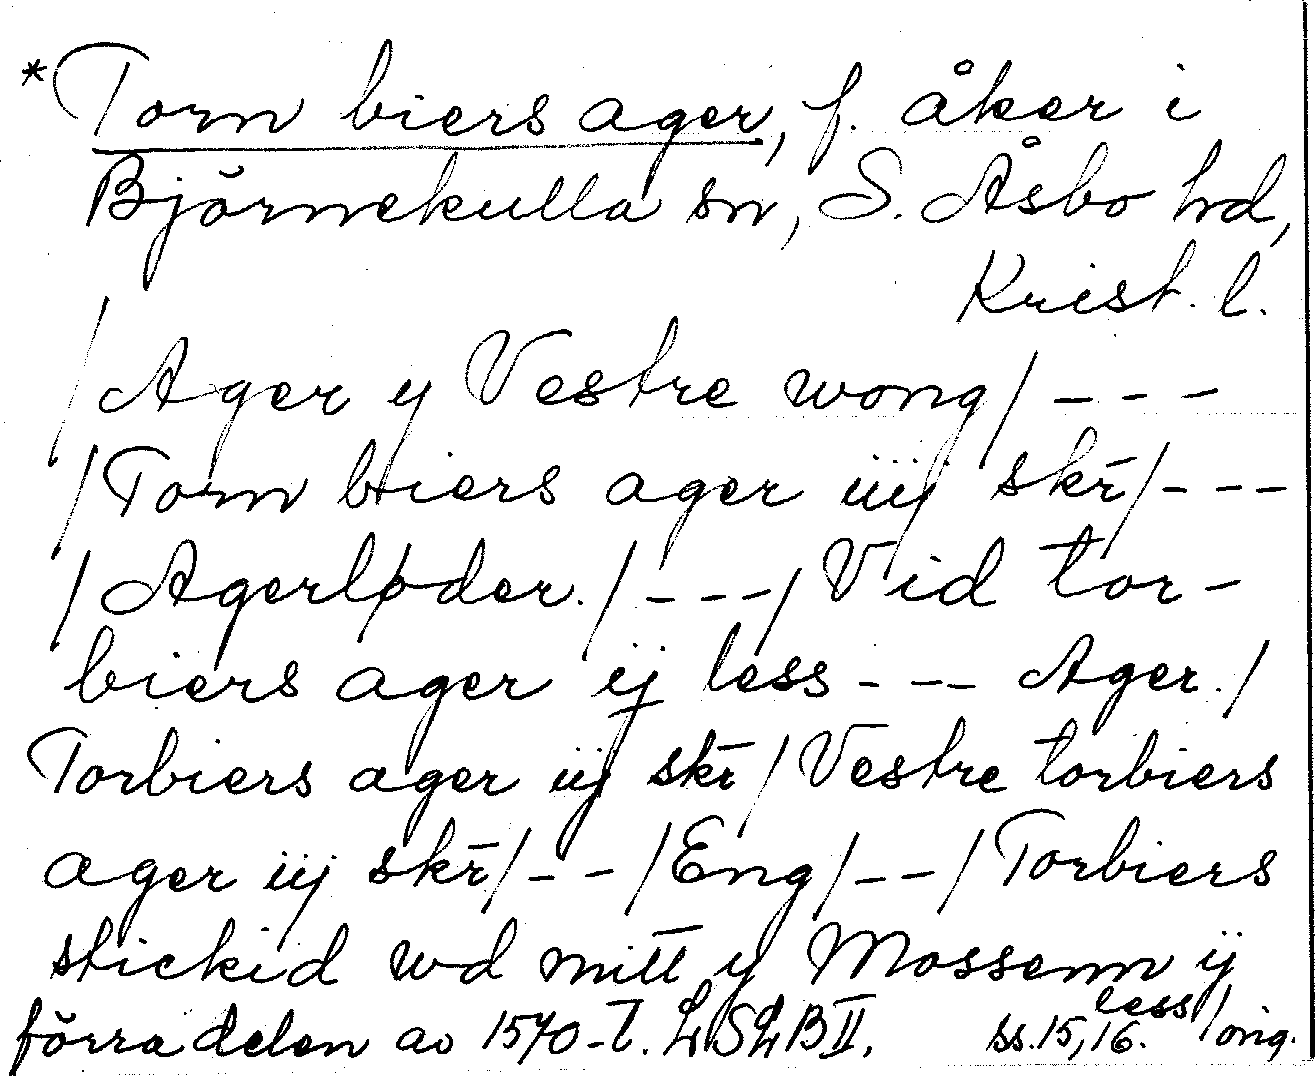 *Torn biers ager, f. åker i
Björnekulla sn, S. Åsbo hd,
Krist. l.
/Ager y Vestre wong/ - - -
/Torn biers ager iiij skr̄/ - - -
/Agerløder./ - - - / Vid tor-
biers ager ij less - - - Ager./
Torbiers ager iij skr̄ / Vestre torbiers
ager iij skr̄/ - - /Eng/ - - / Torbiers
stickid wd mitt y Mossenn ij
less/
förra delen av 1570-t. LSLB II, ss. 15, 16. orig.